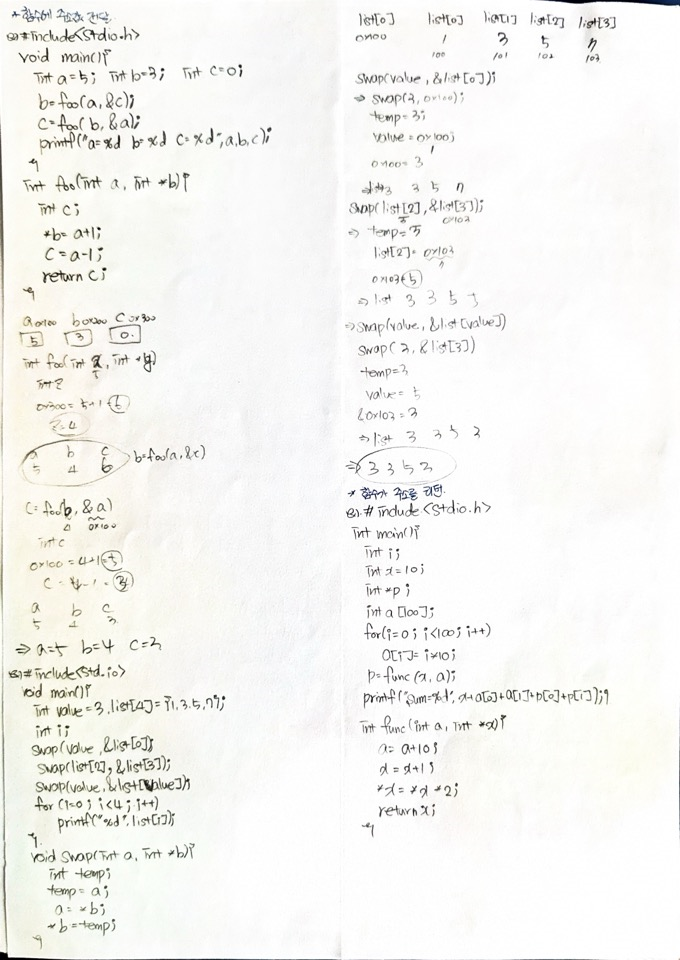 * 함수에 주소를 전달.
ex) #include<stdio.h>
void main(){
int a=5; int b=3; int c=0;
b=foo(a,&c);
c=foo(b,&a);
printf("a=%d b=%d c=%d",a,b,c);
}
int foo(int a, int *b){
int c;
*b= a+1;
c= a-1;
return c;
}
a 0x100 b 0x200 c 0x300
5 3 0.
int foo(int , int *y)
int z
0x300 = 5+1 = 6
z=4
a b c
5 4 6 b=foo(a,&c)
c=foo(b, &a)
4 0x100
int c
0x100 = 4+1=5
c = 4-1=3
a b c
5 4 3
⇒ a=5 b=4 c=3
ex) #include<std.io>
void main(){
int value=3, list[4]={1,3,5,7};
int i;
swap(value,&list[0]);
swap(list[2],&list[3]);
swap(value,&list[value]);
for (i=0; i<4; i++)
printf("%d",list[i]);
}.
void swap(int a, int *b){
int temp;
temp= a;
a= *b;
*b=temp;
}
list[0] list[0] list[1] list[2] list[3]
0x100 1 3 5 7
100 101 102 103
swap(value,&list[0]);
⇒ swap(3,0x100);
temp=3;
value=0x100;
1
0x100= 3
3 3 5 7
swap(list[2],&list[3]);
5 0x103
⇒ temp=5
list[2]= 0x103
7
0x103=5
⇒ list 3 3 5 5
⇒ swap(value,&list[value])
swap(3,&list[3])
temp=3
value= 5
&0x103=3
⇒ list 3 3 5 3
⇒ 3 3 5 3
* 함수가 주소를 리턴.
ex) #include<stdio.h>
int main(){
int i;
int x=10;
int *p;
int a[100];
for(i=0; i<100; i++)
a[i]= i*10;
p=func(x,a);
printf("sum=%d", x+a[0]+a[1]+p[0]+p[1]);}
int func(int a, int *x){
a= a+10;
x= x+1;
*x= *x *2;
return x;
}